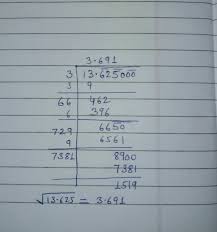 3.691
3 13.625000
3 9
66 462
6 396
729 6650
9 6561
7381 8900
7381
1519
√13.625 = 3.691